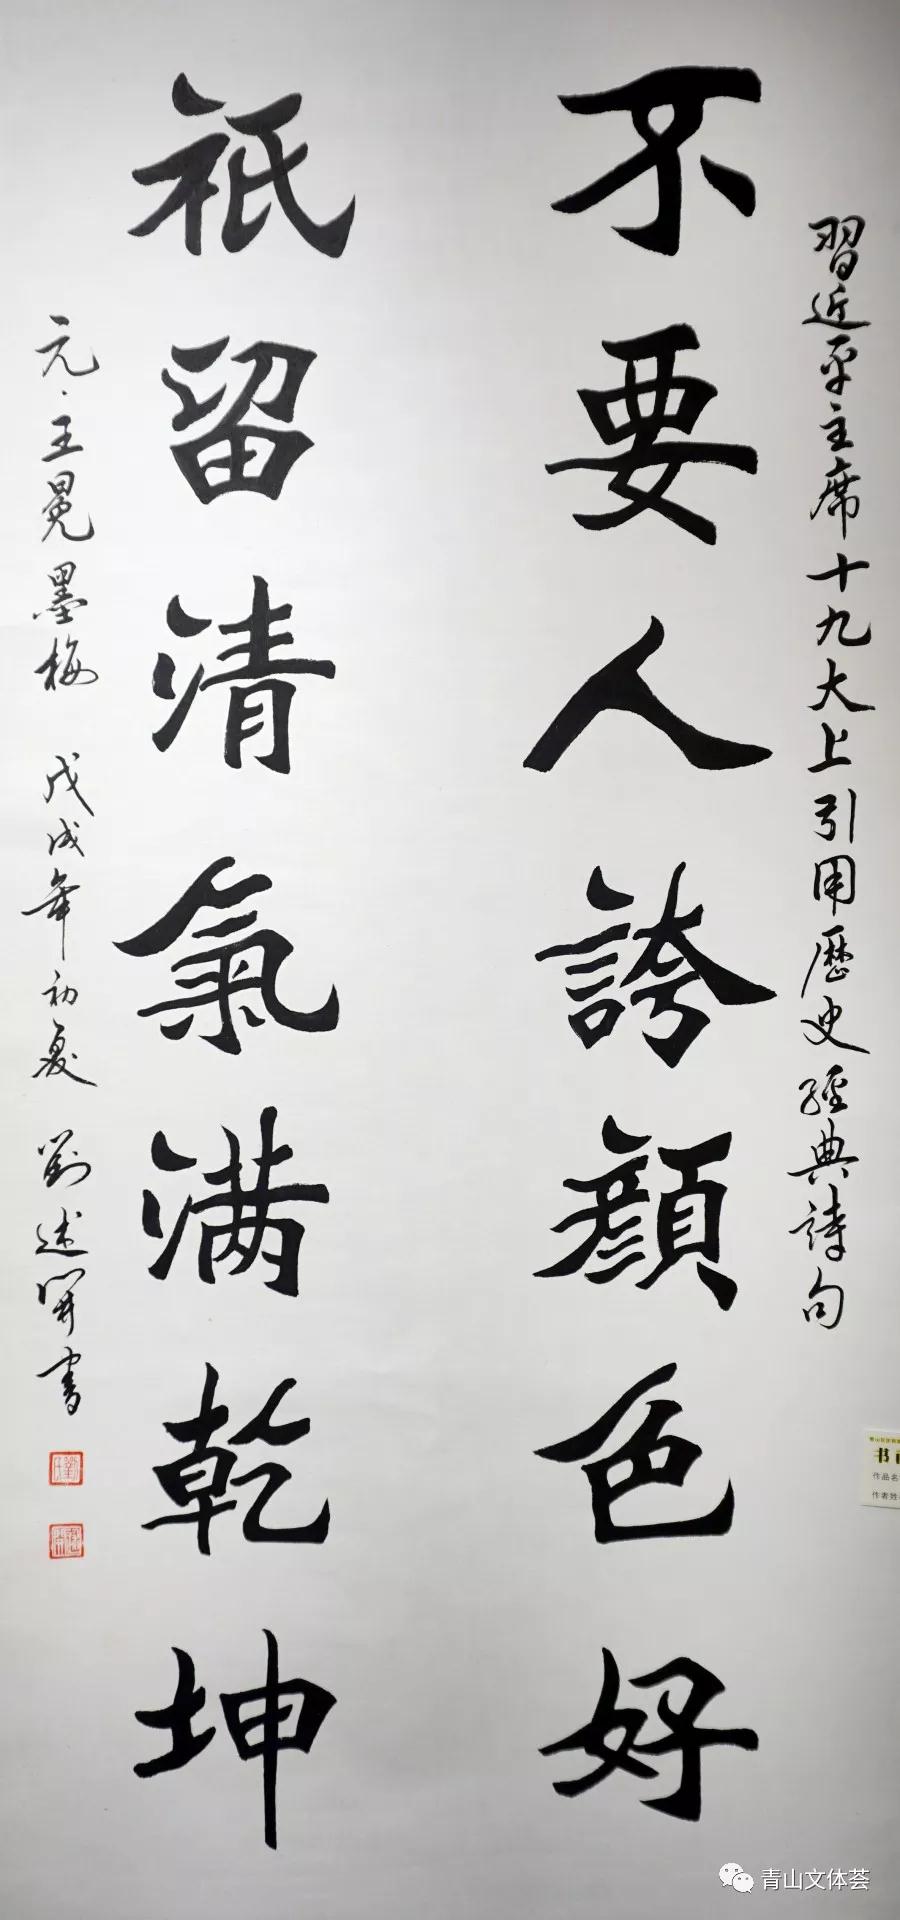 習近平主席十九大上引用歷史經典詩句
不要人誇顏色好
祇留清氣满乾坤
元·王冕墨梅 戊戌年初夏 劉述開書
书
作品名
作者姓
青山文体荟